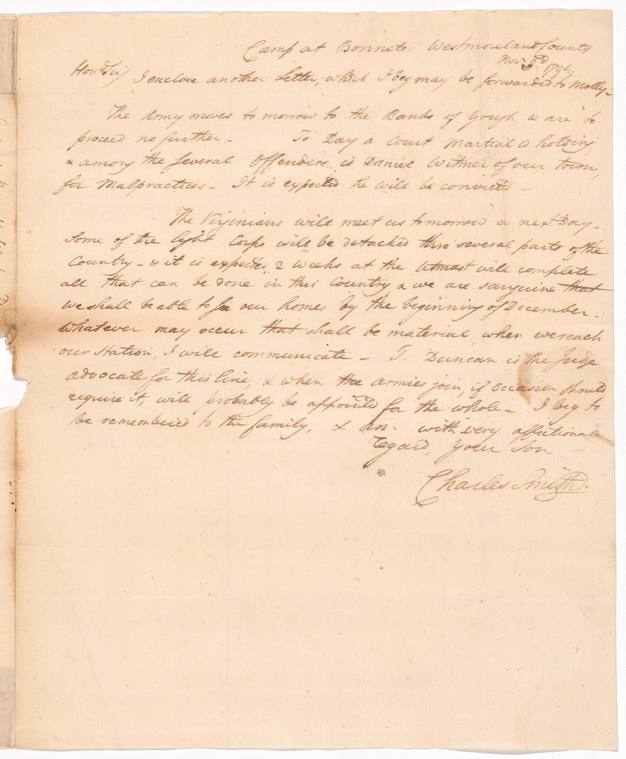 Camp at Bonnets. Westmoreland County
Nov. 3d. 1794
Hond. Sir/ I enclose another Letter, which I beg may be forwarded to Molly.-
The Army moves to morrow to the Banks of Yough, & are to
proceed no further. - To Day a Court Martial is holding
& among the several Offenders is Daniel Witmer of our Town,
for Malpractices - It is expected he will be convicted -
The Virginians will meet us to morrow or next Day -
Some of the light Corps will be detached thro several parts of the
Country - & it is expected 2 weeks at the utmost will complete
all that can be done in this Country & we are sanguine that
we shall be able to see our homes by the beginning of December -
Whatever may occur that shall be material, when we reach
our Station, I will communicate - T. Duncan is the Judge
advocate for this line, & when the armies join, if Occasion should
require it, will probably be appointed for the whole - I beg to
be remembered to the family, & am with very affectionate
regard, Your Son
Charles Smith.